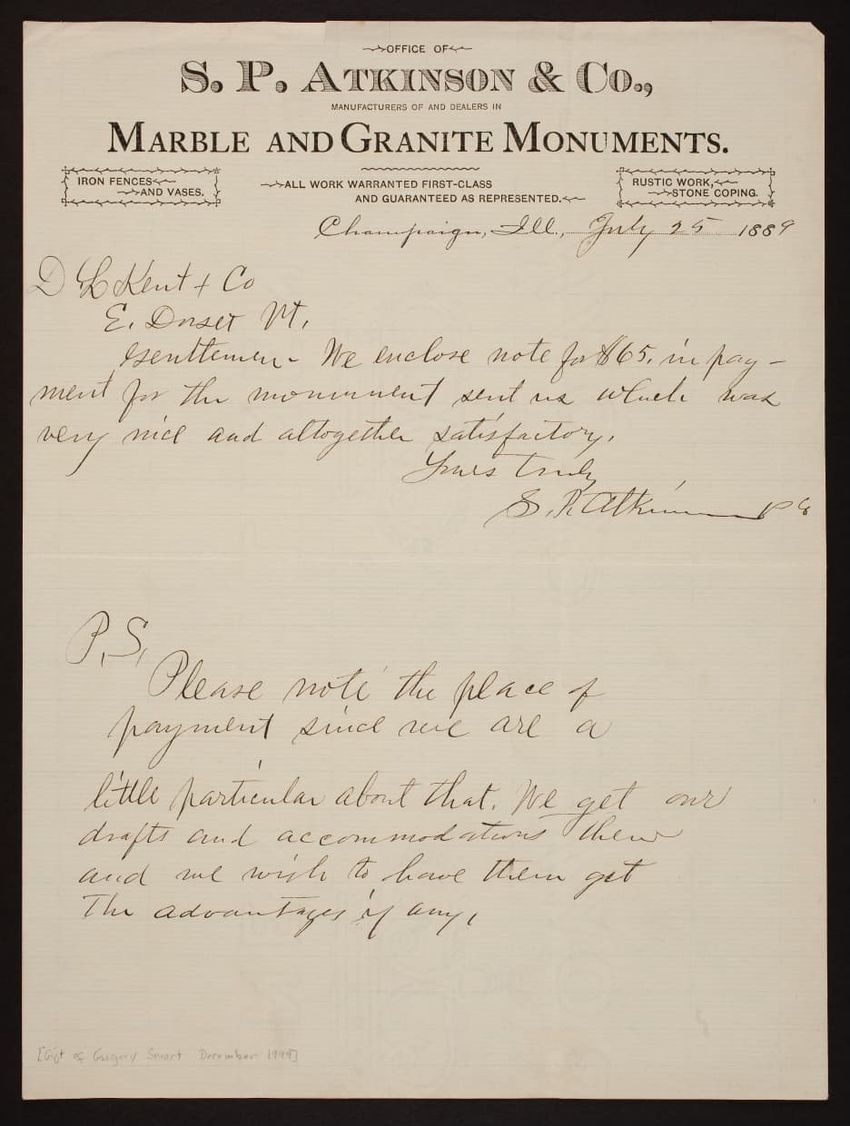 OFFICE OF
S. P. ATKINSON & CO.,
MANUFACTURERS OF AND DEALERS IN
MARBLE AND GRANITE MONUMENTS.
IRON FENCES
AND VASES.
ALL WORK WARRANTED FIRST-CLASS
AND GUARANTEED AS REPRESENTED.
RUSTIC WORK,
STONE COPING.
Champaign, Ill., July 25 1889
D L Kent & Co
E. Dorset Vt.
Gentlemen - We enclose note for $65. in pay-
ment for the monument sent us which was
very nice and altogether satisfactory.
Yours truly
S. P. Atkinson
P.S.
Please note the place of
payment since we are a
little particular about that. We get our
drafts and accommodations there
and we wish to have them get
the advantages if any.
[Gift of Gregory Smart December 1999]